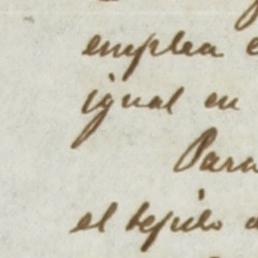 emplea
igual en
Para
el tejido